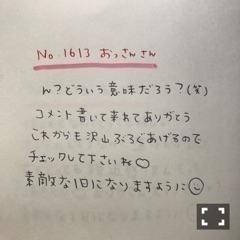 No.1613 おっさんさん
ん？どういう意味だろう？(笑)
コメント書いて来れてありがとう
これからも沢山ぶろぐあげるので
チェックして下さいね○
素敵な1日になりますように☺